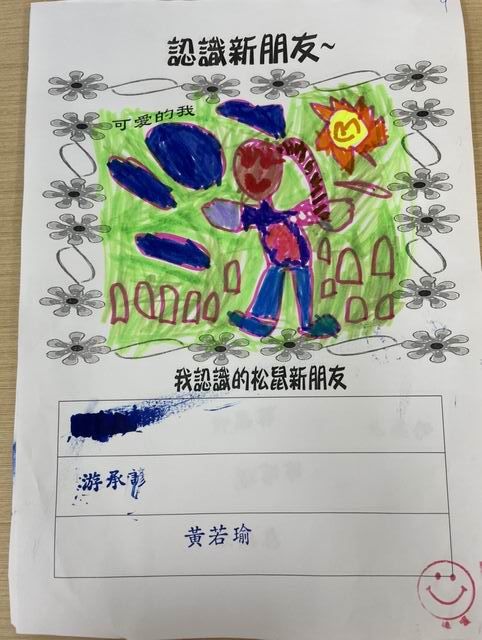 認識新朋友~
可愛的我
我認識的松鼠新朋友
游承諺
黃若瑜